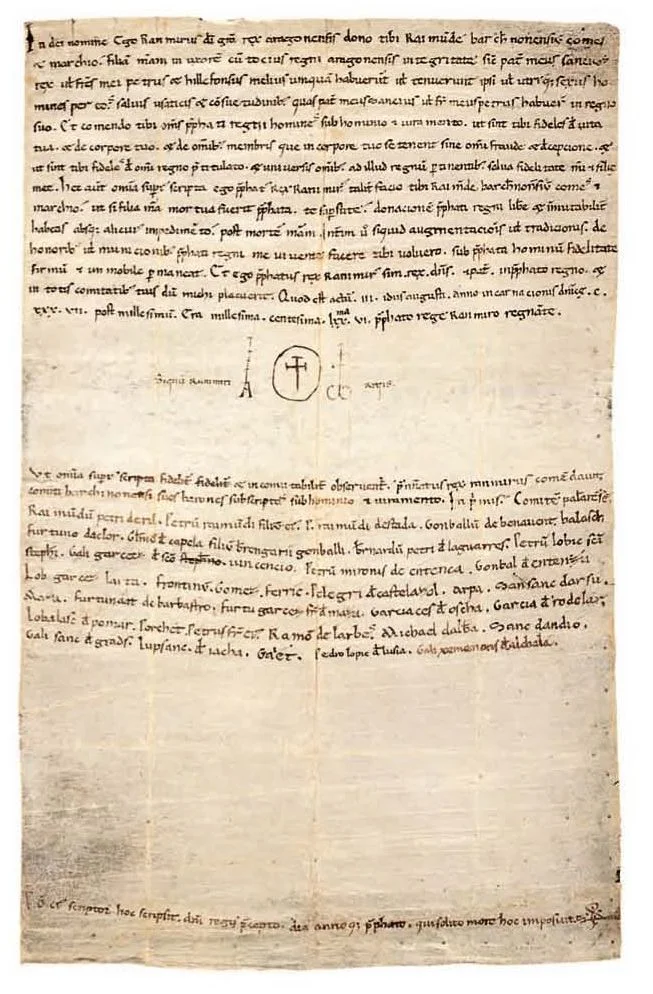 In dei nomine. Ego Ranimirus di gra rex aragonensis dono tibi Raimunde barchinonensis comes
& marchio. filiam mam in uxore cu tocius regni aragonensis integritate. sic pat meus sancius
rex ul fres mei petrus & hillefonsus melius umquam habuerut ul tenuerunt ipsi ul utriq sexus ho
mines per eos. salvis usaticis & consuetudinib quas pat meus sancius ul fr meus petrus habuer in regno
suo. Et comendo tibi oms pphati regni homines sub hominio & iuramento. ut sint tibi fideles d vita
tua. & de corpore tuo. & de omib membris que in corpore tuo se tenent sine omi fraude & decepcione. &
ut sint tibi fideles d omi regno ptitulato. & universis omib ad illud regnu ptinentib. salva fidelitate mi & filie
mee. Hec aut omia supra scripta ego pphat Rex Ranimir talit facio tibi Raimde barchinonensiu comes &
marchio. ut si filia ma mortua fuerit pphata. te supstite. donacione pphati regni libe & inmutabilit
habeas absq alicui impedimeto. post morte mam. Intim u siquid augmentacionis ul tradicionis. de
honorib ul municionib pphati regni me vivente facere tibi voluero. sub pphata hominu fidelitate
firmu & inmobile pmaneat. Et ego pphatus rex Ranimir sim rex. dns. & pat. in pphato regno. &
in totis comitatib tuis du michi placuerit. Quod est actu. iii. idus augusti. anno incarnacionis dnice. c.
xxx. vii. post millesimu. Era millesima. centesima. lxx.ma vi. pphato rege Ranimiro regnate.
Signu Ranimiri regis.
Ut omia supra scripta fidelit fidelit & incomutabilit observent. pnotatus rex ranimirus comedavit
comiti barchinonensi suos barones subscriptos sub hominio & iuramento. In pmis. Comite palarese.
Raimundu petri deril. Petru raimudi filiu ei. P. raimudi destada. Gonballu de benavent. balasch
furtunio daclor. Glmo d capela filiu brengarii gonballi. bernardu petri d laguarres. Petru lobic sca
stephi. Gali garcez. d sco stephno. vincencio. Petru mironis de entenca. Gonbal d entenza
Lob garcez laita. Frontinu. Gomez. Ferric. Pelegri d castelazol. Arpa. Sansanc darsu.
Maza. furtunant de barbastro. furtu garcez fr d maza. Garcia ces d oscha. Garcia d rodelar
Lobalasc d pomar. Porchet. Petrus fr ei. Ramo de larbes. Michael dalba. Sanc dandio.
Gali sanc d grads. lupsanc. d iacha. Gaet. Pedro lopic d lusia. Gali xemenons d alchala.
scriptor hoc scripsit. dni regis pcepto. anno q pphato. qui solito more hoc imposuit